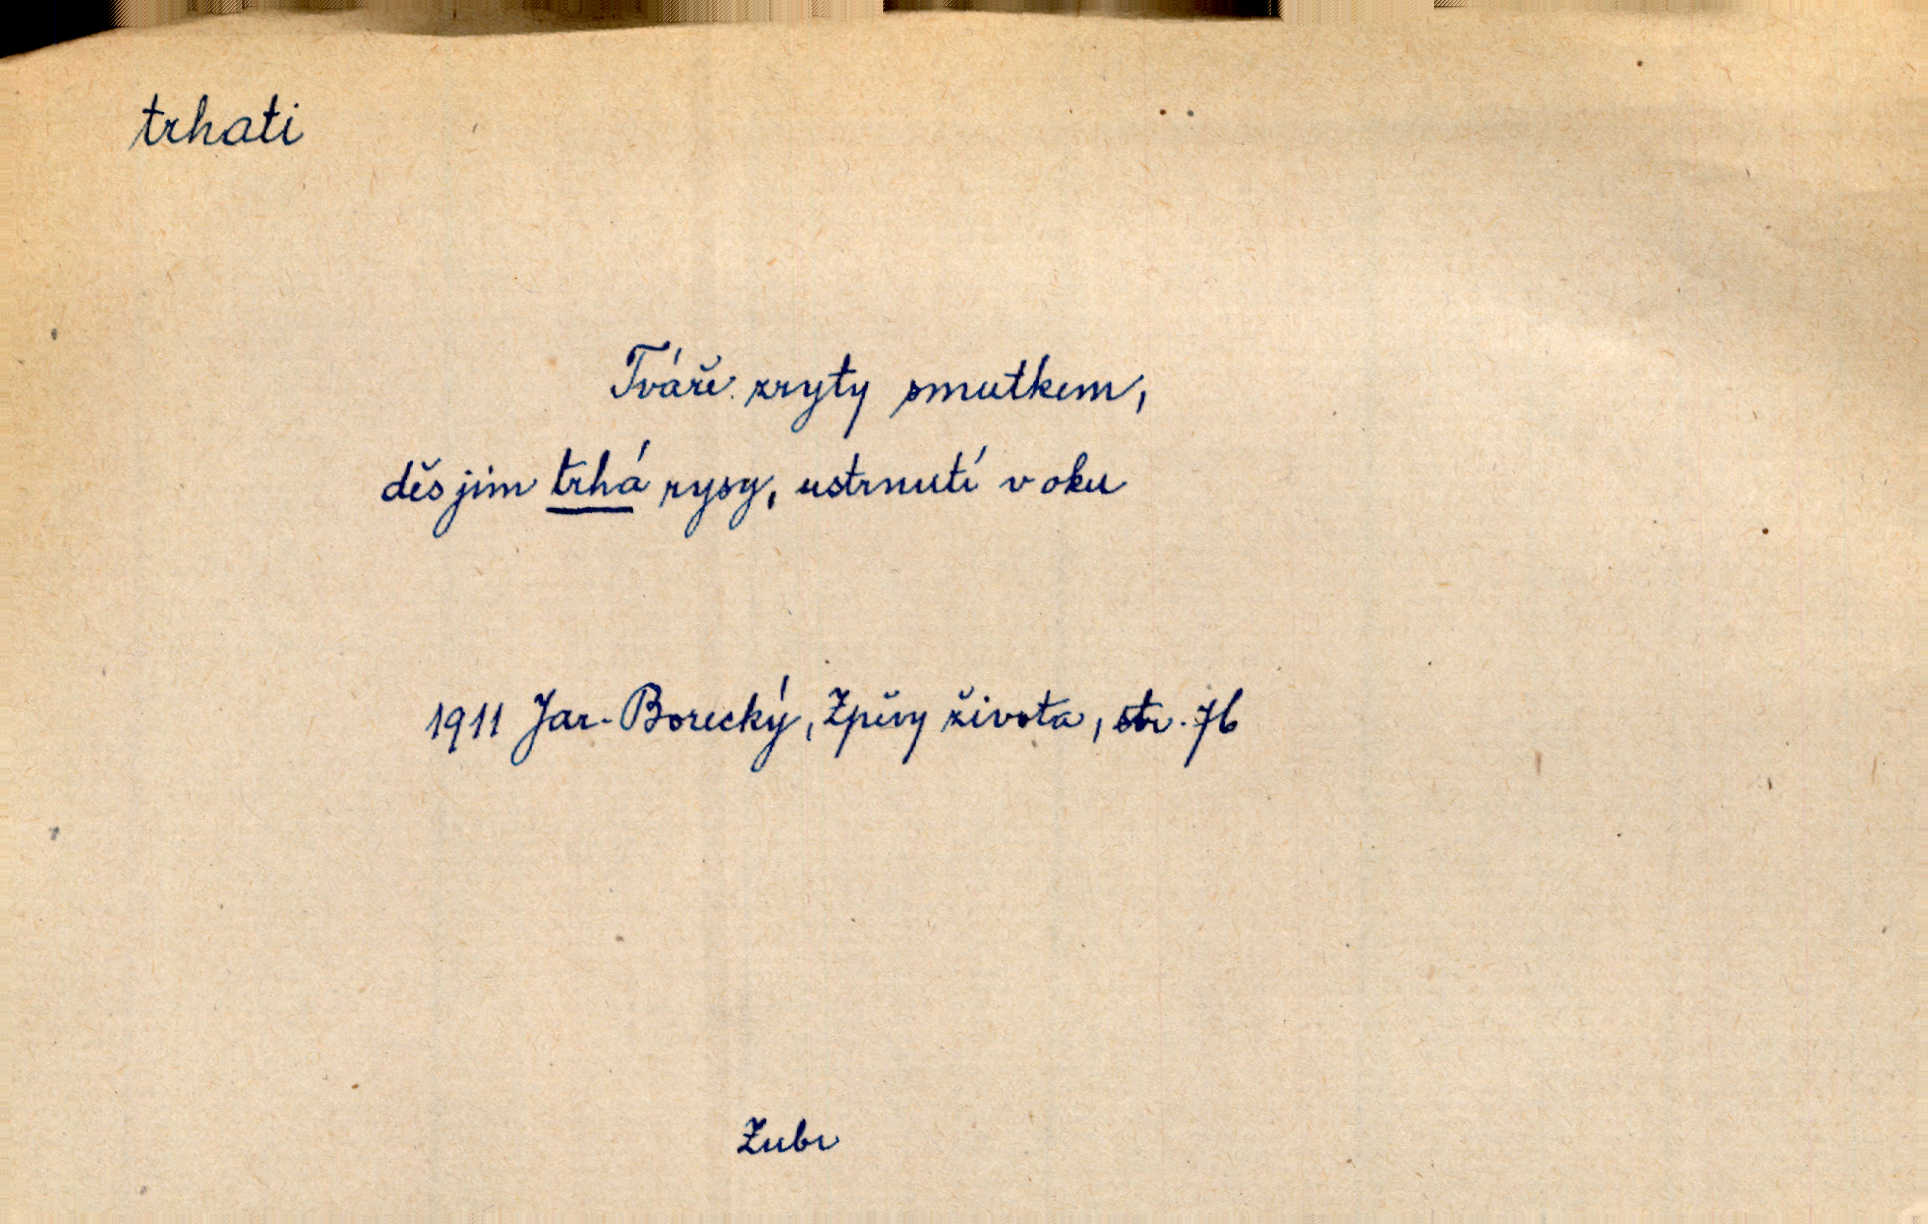 trhati
Tváře zryty smutkem,
děs jim trhá rysy, ustrnutí v oku
1911 Jar. Borecký, Zpěvy života, str. 76
Zubr